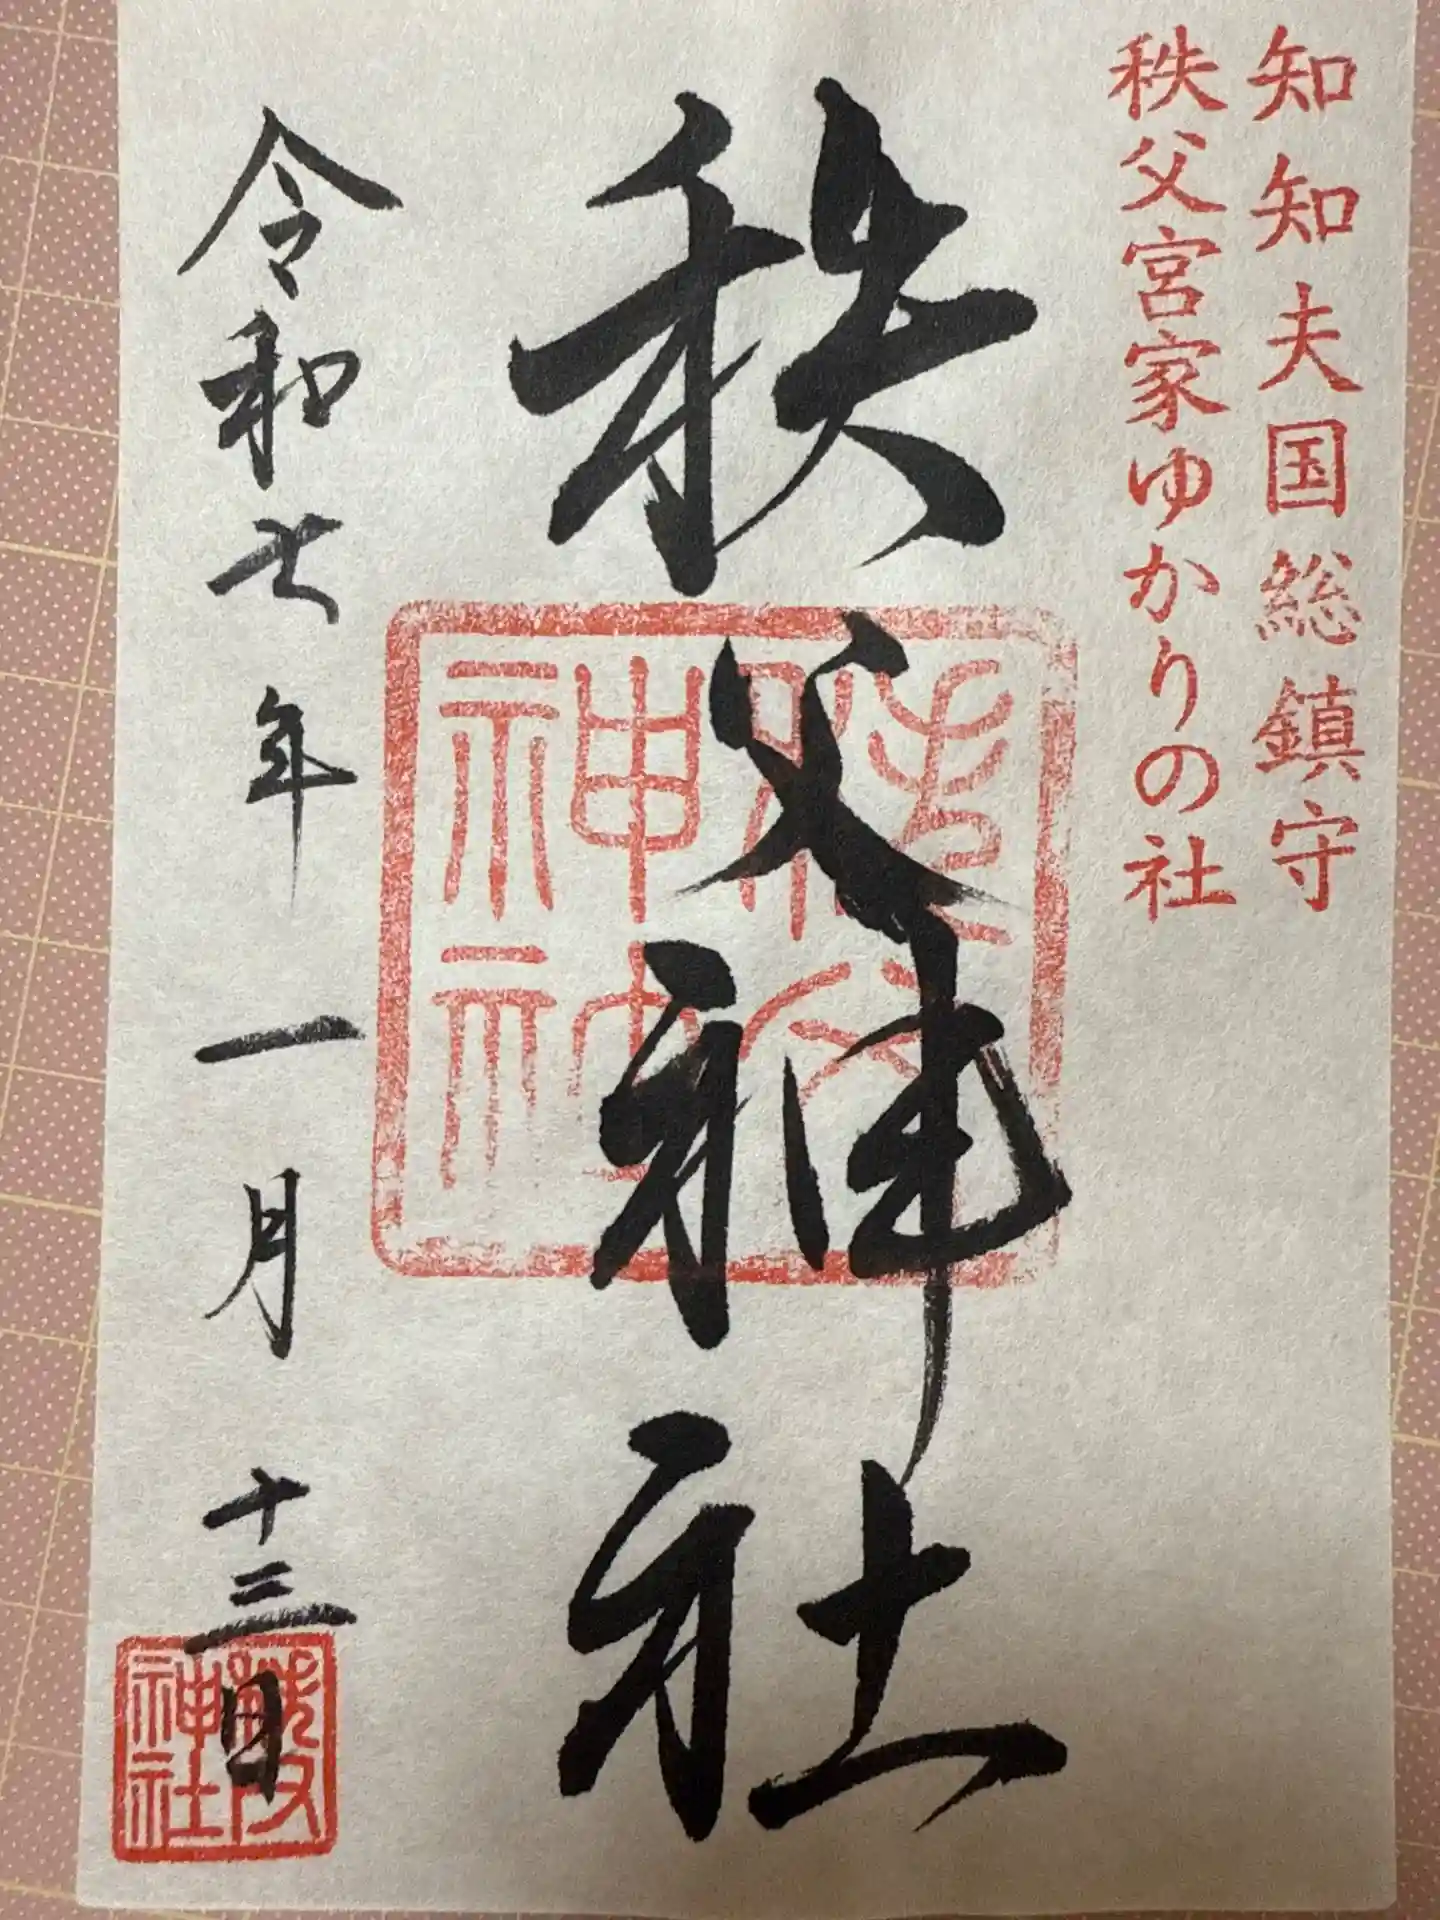 知知夫国総鎮守
秩父宮家ゆかりの社
秩父神社
秩父神社
令和七年一月十三日
神社